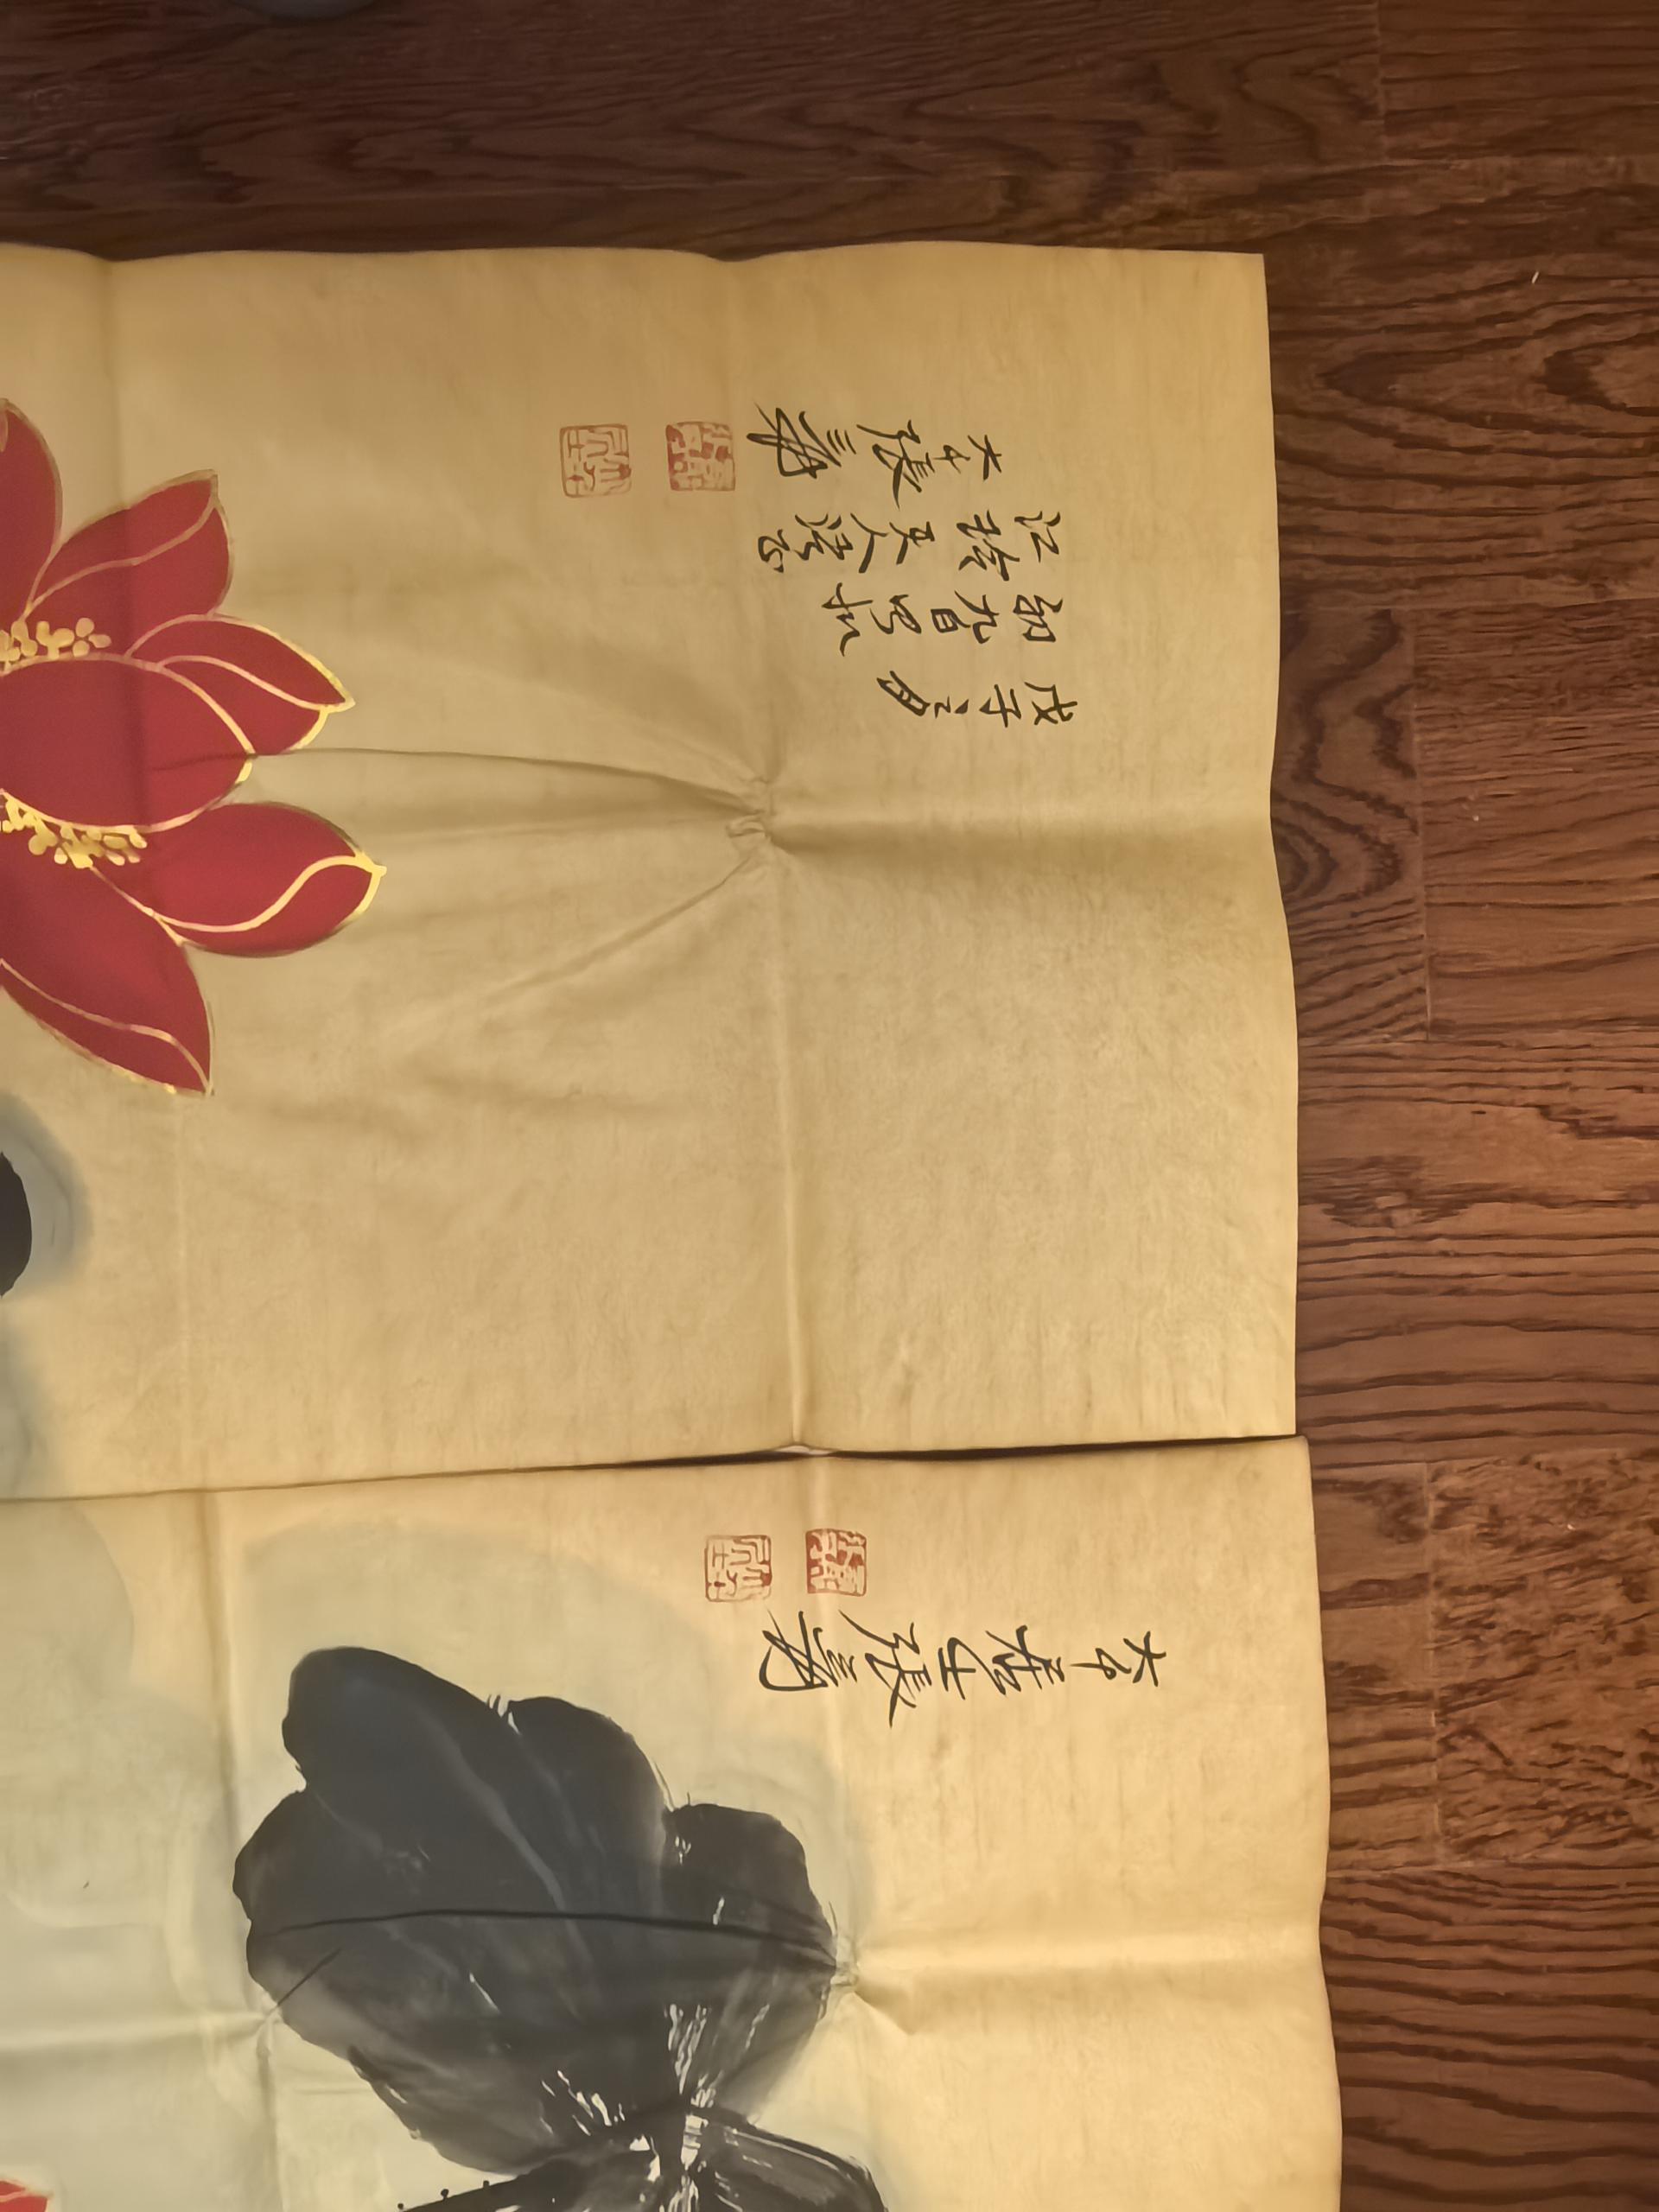 戊子二月
初九日寫於
江 夫人法正
大千張爰
大千居士張爰